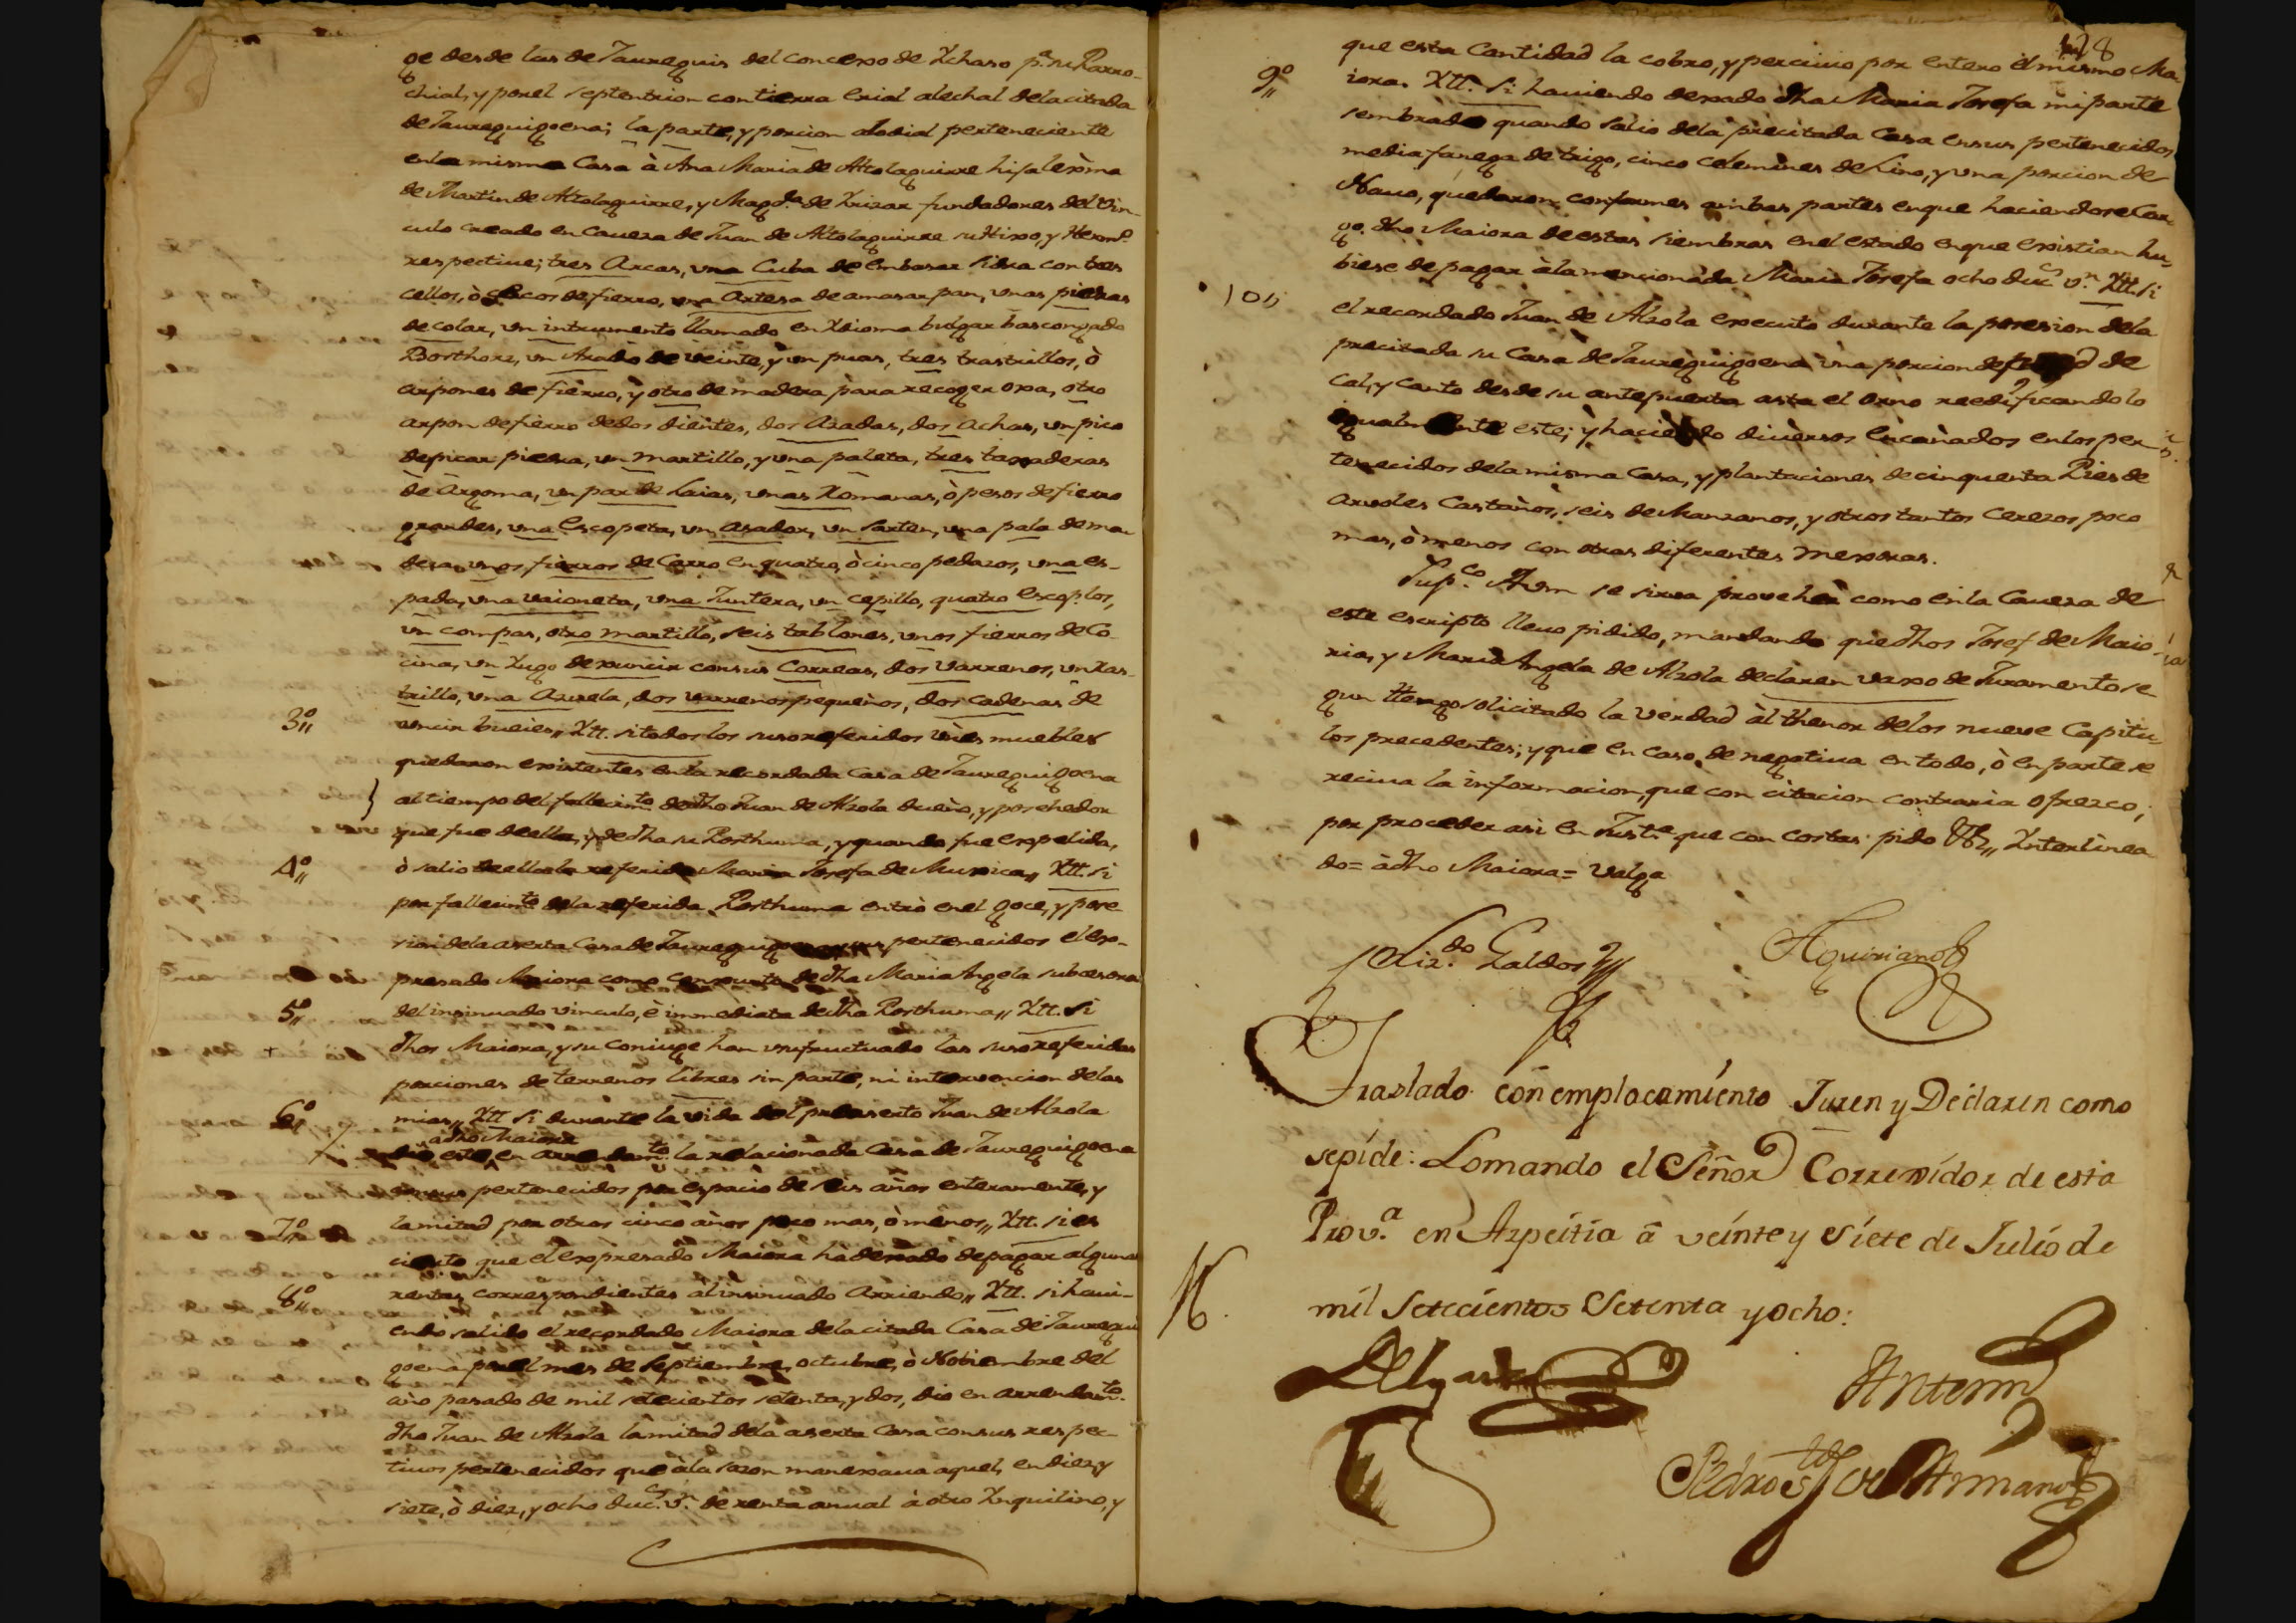 ge desde las de Jaureguis del concexo de Ychaso p.ª su Parro-
chial, y por el septentrion con tierra erial alechal dela citada
de Jaureguigoena; la parte, y porcion alodial perteneciente
en la misma Casa à Ana Maria de Altolaguirre hija lexma
de Martin de Altolaguirre, y Magd.ª de Yrizar fundadores del vin-
culo creado en Caueza de Juan de Altolaguirre su Hixo, y Herm.º
respectiue; tres Arcas, vna Cuba de embasar sidra con tres
cellos, ò de fierro, vna Artesa de amasar pan, vnas piedras
de colar, vn intrumento llamado en Ydioma bulgar bascongado
Borthorz, vn Arado de veinte, y vn puas, tres trastrillos, ò
arpones de fierro, y otro de madera para recoger oxa, otro
arpon de fierro de dos dientes, dos Azadas, dos achas, vn pico
de picar piedra, vn martillo, y vna paleta, tres
de Argoma, vn par de Laias, vnas Romanas, ò pesos de fierro
grandes, vna Escopeta, vn asador, vn sarten, vna pala de ma-
dera, vnos fierros de Carro en quatro, ò cinco pedazos, vna es-
pada, vna vaioneta, vna Juntera, vn cepillo, quatro escoplos,
vn compas, otro martillo, seis tablones, vnos fierros de Co-
cina, vn Yugo de vuncir con sus Correas, dos varrenos, vn Ras-
trillo, vna Azuela, dos varrenos pequeños, dos cadenas de
3º,, vncir bueies,, Ytt. si todos los suso referidos vienes muebles
quedaron existentes en la recordada casa de Jaureguigoena
al tiempo del fallecim.to de dho Juan de Alzola dueño, y posehedor
que fue de ella, y de dha su Posthuma, y quando fue expelida,
4º,, ò salio de ella la referida Maria Josefa de Muxica,, Ytt. si
por fallecim.to de la referida Posthuma entrò en el goce, y pose-
sion de la aserta Casa de pertenecidos el ex-
presado Maiora como conjunto de dha Maria Angela subcesora
5º,, del insinuado vinculo, è immediata de dha Posthuma,, Ytt. si
dhos Maiora, y su coniuge han vsufructuado las suso referidas
porciones de terrenos libres sin parte, ni intervencion de las
6º,, mias,, Ytt. si durante la vida del Juan de Alzola
adho Maiora
dio este en arrendam.to la relacionada Casa de Jaureguigoena
pertenecidos por espacio de seis años enteramente, y
7º,, la mitad por otros cinco años poco mas, ò menos,, Ytt. si es
cierto que el expresado Maiora hà dexado de pagar alguna
8º,, rentas correspondientes al insinuado Arriendo,, Ytt. si haui-
endo salido el recordado Maiora de la citada Casa de Jauregui
goena por el mes de Septiembre, octubre, ò Nobiembre del
año pasado de mil setecientos setenta, y dos, dio en arrendam.to
dho Juan de Alzola la mitad de la aserta Casa con sus respec-
tiuos pertenecidos que à la sazon manexaua aquel, en diez, y
siete, ò diez, y ocho duc.s v.n de renta anual à otro Ynquilino, y
28
que esta Cantidad la cobro, y perciuio por entero el mismo Ma-
9º,, iora. Ytt. si hauiendo dexado dha Maria Josefa mi parte
sembrado quando salio de la precitada Casa en sus pertenecidos
media fanega de trigo, cinco celemines de Lino, y vna porcion de
Nauo, quedaron conformes ambas partes en que haciendose Car-
go dho Maiora de estas siembras en el estado en que existian hu-
biese de pagar à la mencionada Maria Josefa ocho duc.s v.n Ytt. si
10,, el recordado Juan de Alzola executo durante la posesion de la
precitada su Casa de Jaureguigoena vna porcion de de
Cal, y Canto desde su antepuerta asta el orno reedificandolo
igualmente este; y haciendo diuersos encañados en los per-
tenecidos de la misma Casa, y plantaciones de cinquenta Pies de
arvoles Castaños, seis de Manzanos, y otros tantos Cerezos poco
mas, ò menos con otras diferentes mexoras.
Sup.co A vm se sirva proveher como en la Caueza de
este escripto lleuo pidido, mandando que dhos Josef de Maio-
ra, y Maria Angela de Alzola declaren vaxo de Juramento se
gun ttengo solicitado la verdad àl thenor de los nueve Capitu-
los precedentes; y que en caso de negatiua en todo, ò en parte se
reciua la informacion, que con citacion contraria ofrezco;
por proceder asi en Just.ª que con costas pido Vtt,, Ynterlinea
do= à dho Maiora= Valga
Liz.do Galdos
Aquiriano
Traslado con emplacamiento Juren y Declaren como
sepide: Lomando el Señor Correxidor de esta
Prov.ª en Azpeitia â veinte y siete de Julio de
mil Setecientos Setenta y ocho:
Antemi
Pedro